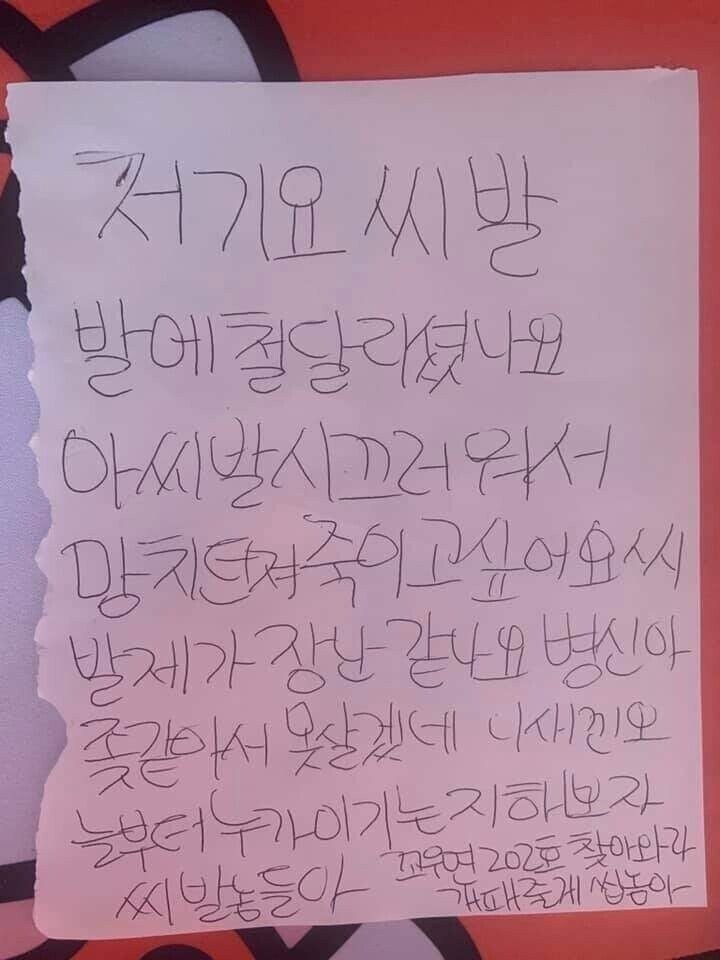 저기요 씨발
발에철달라셨나요
아씨발시끄러워서
망치던져죽이고싶어요씨
발제가장난같나요병신아
좆같아서못살겠네 니새낀오
늘부터누가이기는지하보자
씨발놈들아
꼬우면202호찾아와라
개패줄게씹놈아